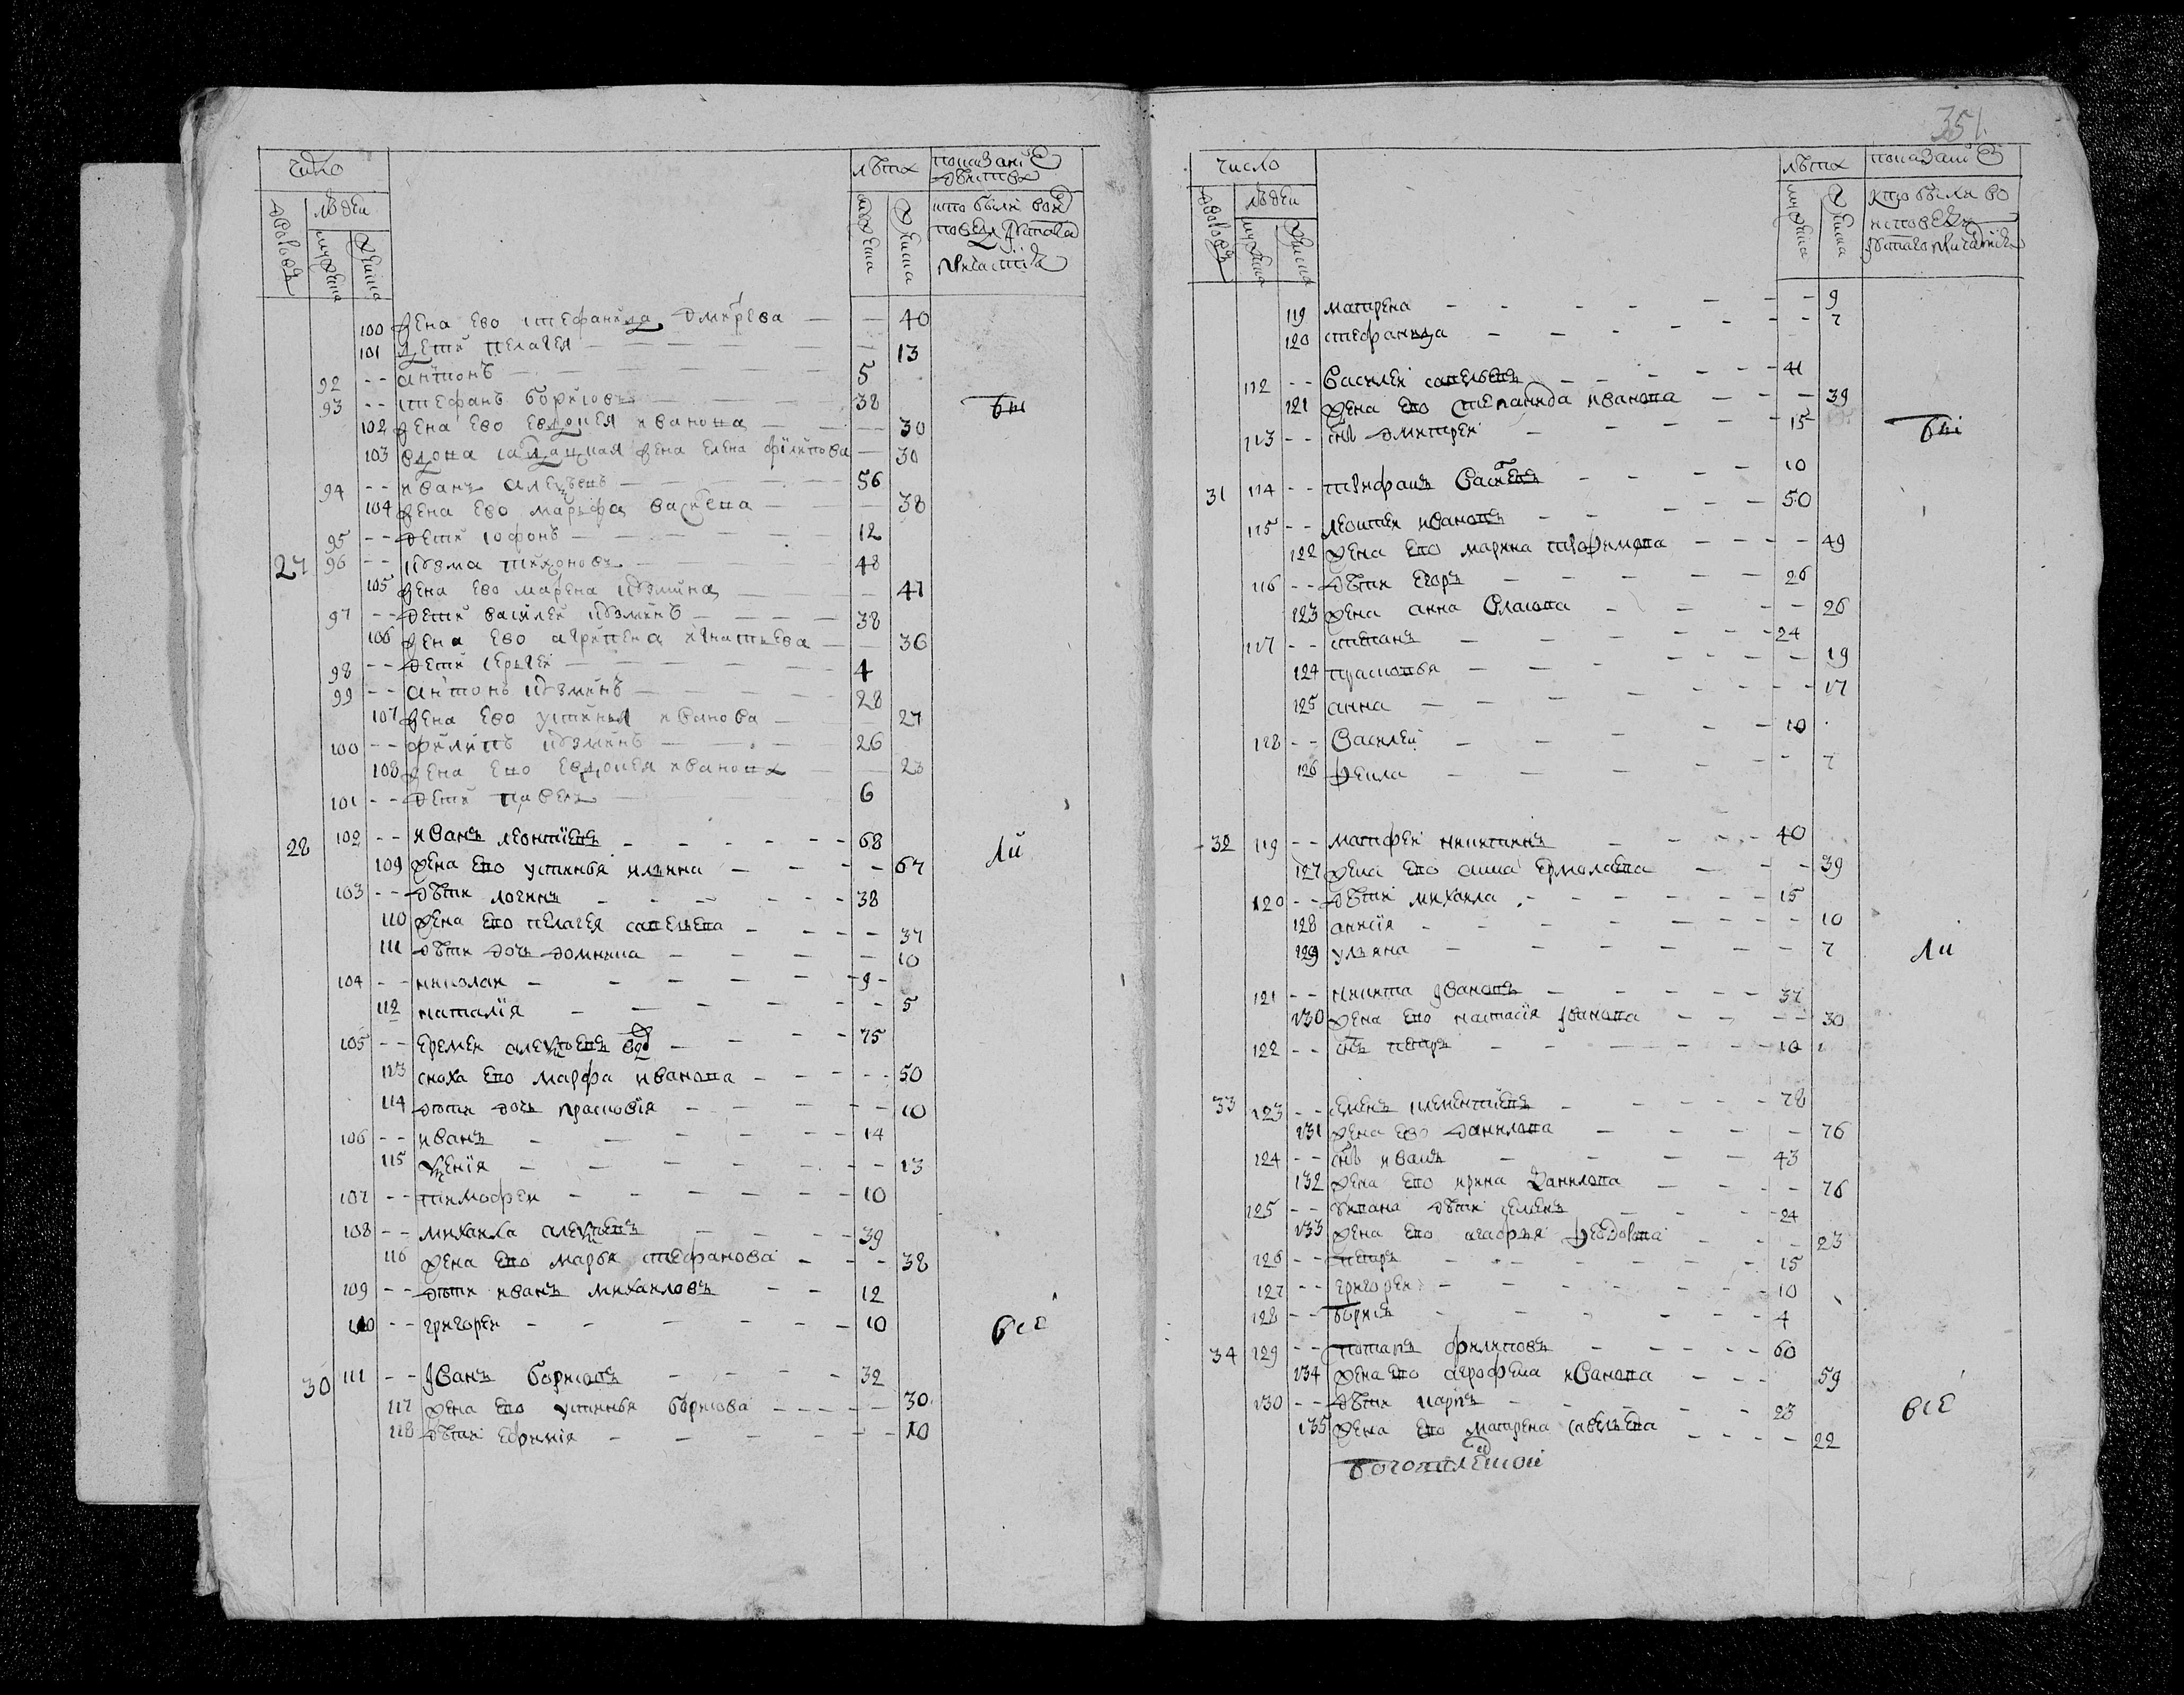 число
людей
дворовъ
мужеска
женска
лѣтъ
мужеска
женска
показание
действъ
кто были во испо
веди и святаго
причастия
100 жена ево стефанида дмитрева — — 40
101 дети пелагея — 13
92 -- антонъ — 5
93 -- стефанъ борисовъ — 38
бы
102 жена ево евдокея иванова — 30
103 вдова салдацкая жена елена филипова — 30
94 -- иванъ алексѣевъ — 56
104 жена ево марьфа василева — 38
95 -- дети софонъ — 12
27 96 -- кузма тихоновъ — 48
105 жена ево марена кузмина — 47
97 -- дети василей кузминъ — 38
106 жена ево агрипена игнатьева — 36
98 -- дети сергей — 4
99 -- антонъ кузминъ — 28
107 жена ево устинья иванова — 27
100 -- филипъ кузминъ — 26
108 жена ево евдокея иванова — 23
101 -- дети павелъ — 6
28 102 -- иванъ леонтиевъ — 68
ли
109 жена ево устинья илина — 67
103 -- дѣти логинъ — 38
110 жена ево пелагея савельева — 37
111 дѣти дочь домника — 10
104 -- николаи — 9
112 наталия — 5
105 -- еремеи алексѣевъ вдо — 75
113 сноха ево марфа иванова — 50
114 дѣти дочь прасковїя — 10
106 -- иванъ — 14
115 ксения — 13
107 -- тимофеи — 10
108 -- михаила алексѣевъ — 39
116 жена ево марья стефанова — 38
109 -- дѣти иванъ михаиловъ — 12
110 -- григореи — 10
всѣ
30 111 -- иванъ борисовъ — 32
117 жена ево устинья борисова — 30
118 дѣти ефимия — 10
351.
число
людеи
дворовъ
мужеска
женска
лѣтъ
мужеска
женска
показание
кто были во
исповеди и
святаго причастия
119 матрена — 9
120 стефанида — 7
112 -- василеи савельевъ — 41
121 жена ево степанида иванова — 39
113 -- снъ дмитреи — 15
бы
31 114 -- трифанъ васильевъ — 10
115 -- леонтеи ивановъ — 50
122 жена ево марина трофимова — 49
116 -- дѣти егоръ — 26
123 жена анна власова — 26
117 -- степанъ — 24
124 прасковья — 19
125 анна — 17
118 -- василей — 10
126 фекла — 7
32 119 -- матфеи никитинъ — 40
127 жена ево анна ермолаева — 39
120 -- дѣти михаила — 15
128 аниския — 10
129 ульяна — 7
ли
121 -- никита ивановъ — 37
130 жена ево настасия иванова — 30
122 -- снъ петръ — 10
33 123 -- семенъ клементиевъ — 78
131 жена ево данилова — 76
124 -- снъ иванъ — 43
132 жена ево ирина данилова — 76
125 -- у ивана дѣти семенъ — 24
133 жена ево агафья федорова — 23
126 -- петръ — 15
127 -- григореи — 10
128 -- борисъ — 4
34 129 -- потапъ филиповъ — 60
134 жена ево агрофена иванова — 59
130 -- дѣти карпъ — 23
всѣ
135 жена ево матрена савельева — 22